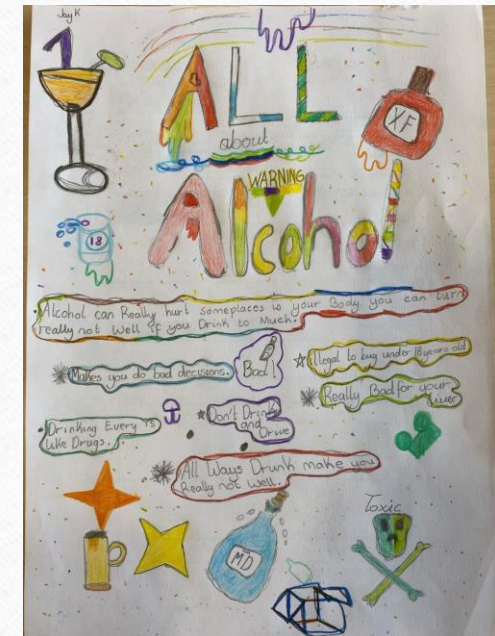 Jay K
1
ALL
about
XF
WARNING
Alcohol
18
Alcohol can Really hurt someplaces in your Body you can turn
really not well if you Drink to Much.
Makes you do bad decisions.
Bad!
illegal to buy under 18 years old
Really Bad for your
liver
Drinking Every is
like Drugs.
Don't Drink
and
Drive
All Ways Drunk make you
Really not well.
Toxic
MD